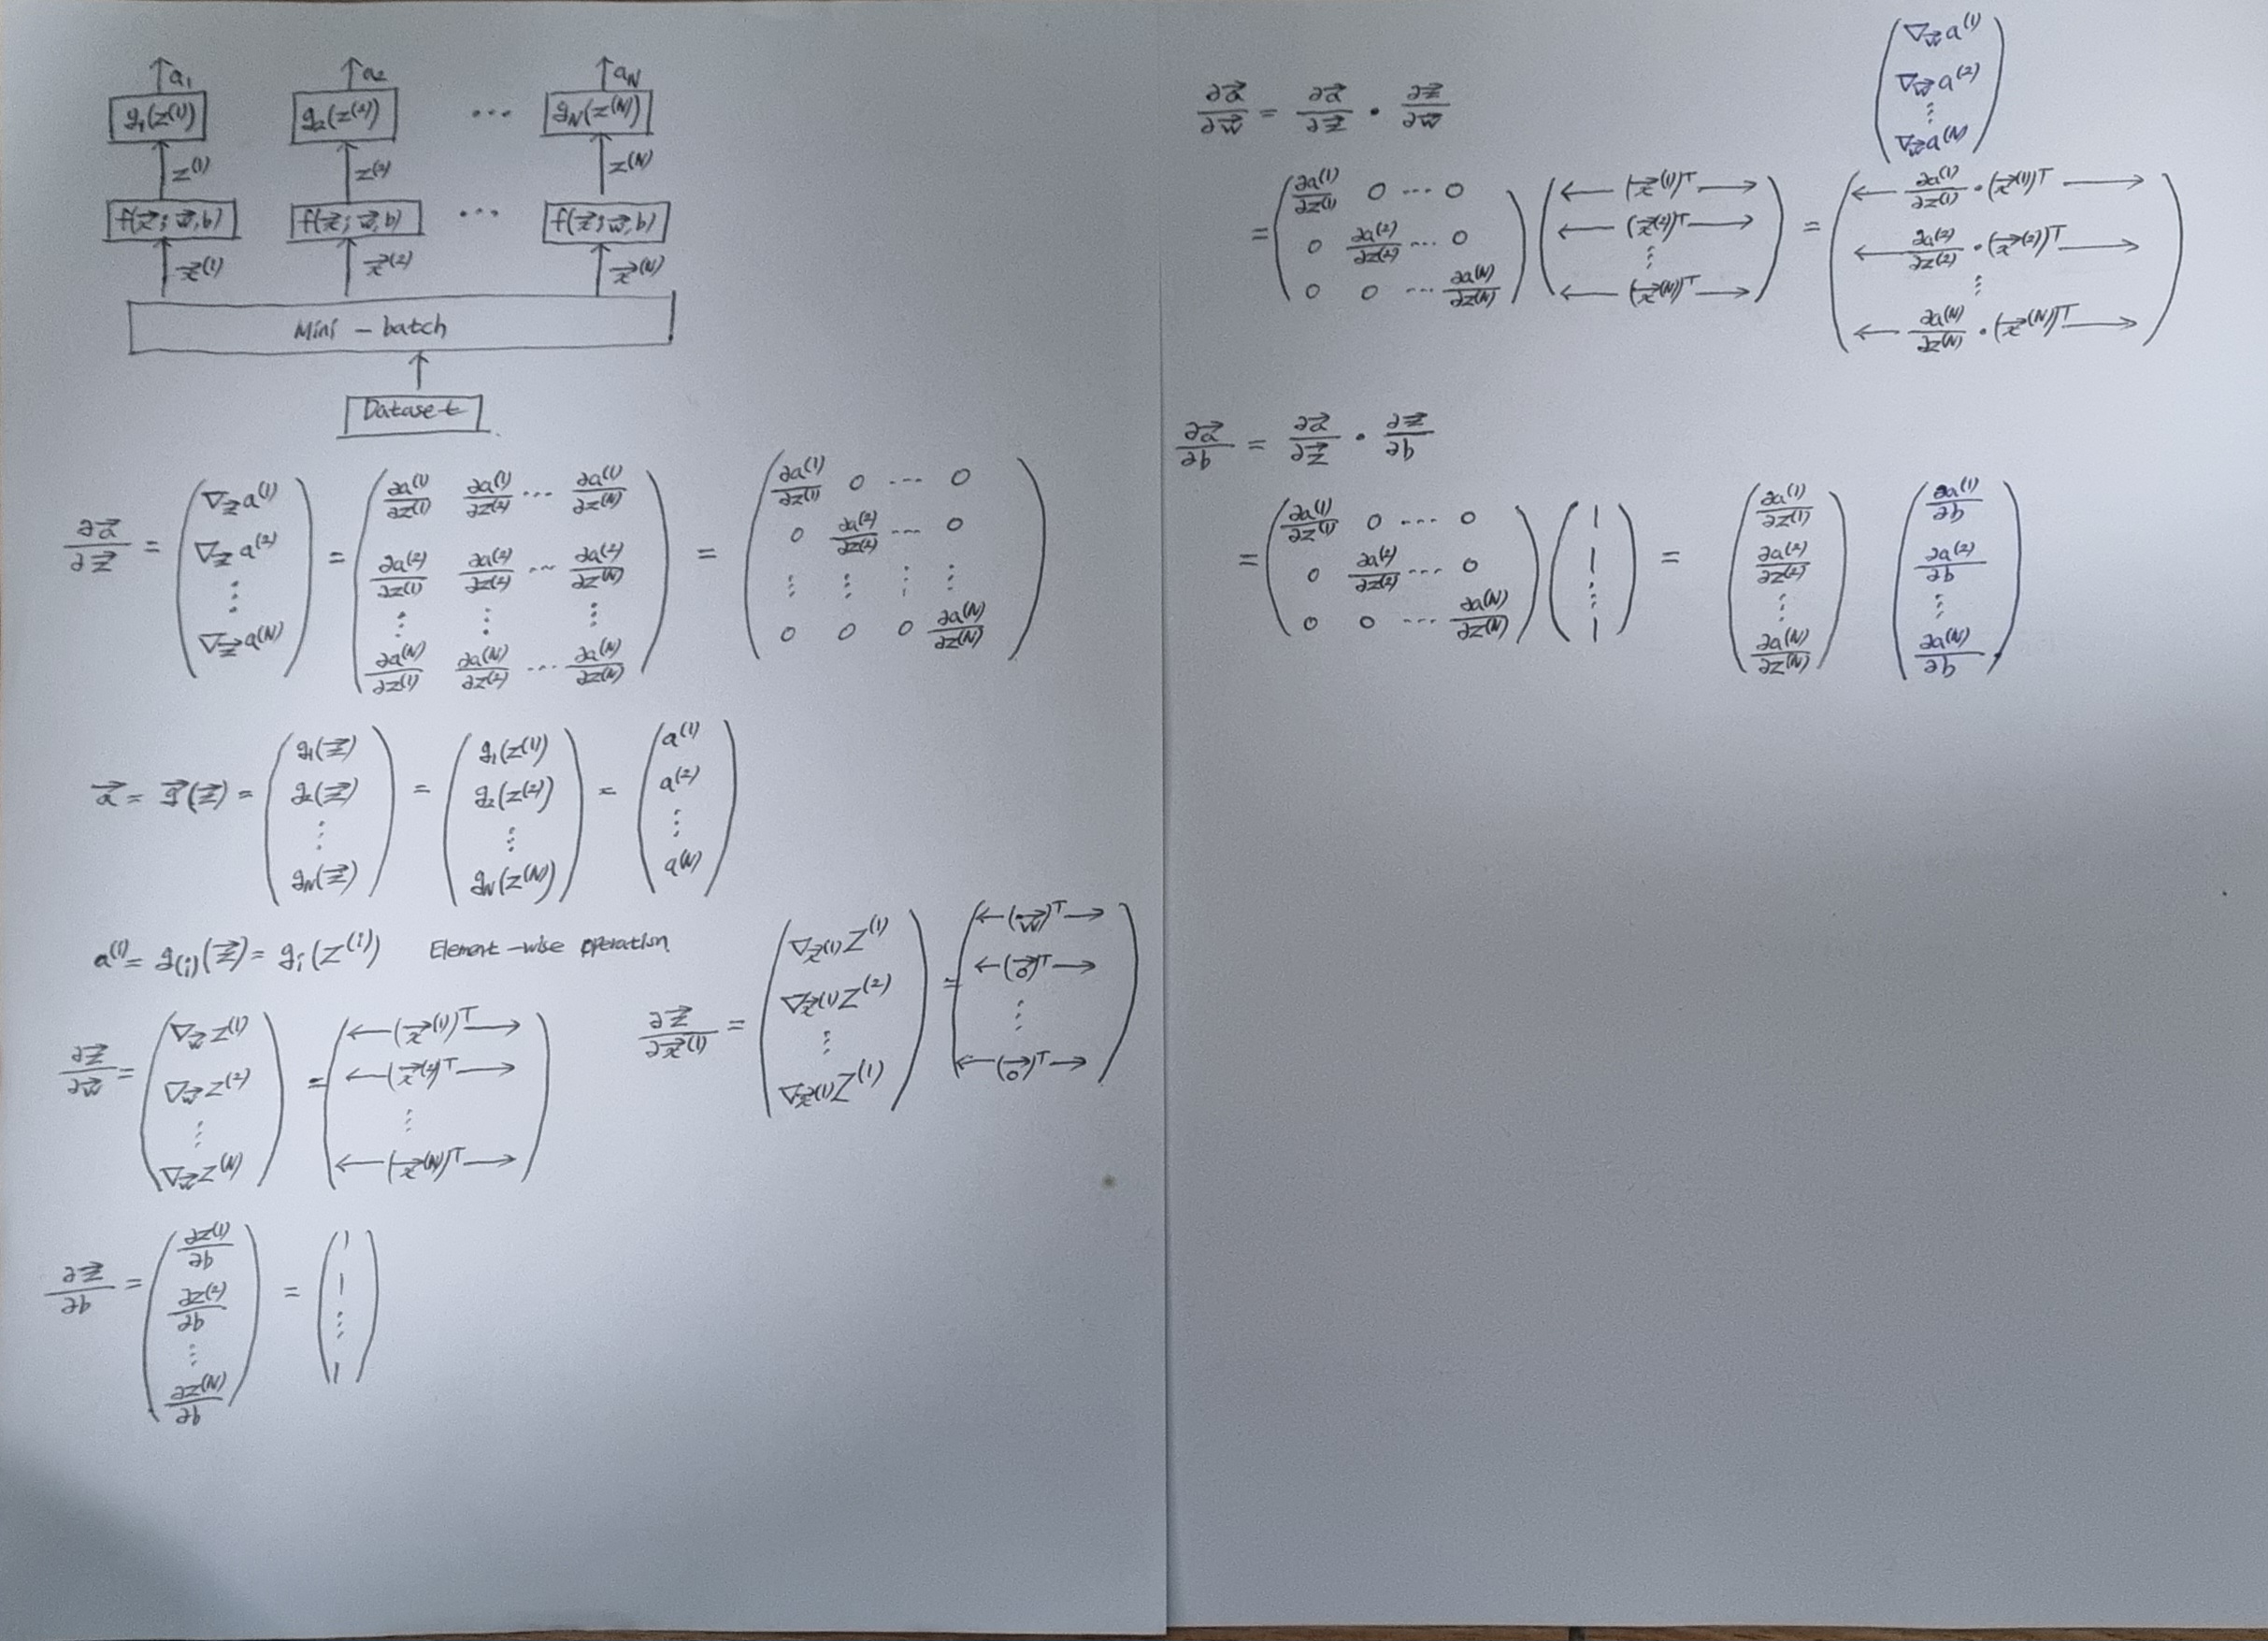 a₁ a₂ a_N
g₁(z⁽¹⁾) g₂(z⁽²⁾) ⋯ g_N(z⁽ᴺ⁾)
z⁽¹⁾ z⁽²⁾ z⁽ᴺ⁾
f(x⃗; w⃗, b) f(x⃗; w⃗, b) ⋯ f(x⃗; w⃗, b)
x⃗⁽¹⁾ x⃗⁽²⁾ x⃗⁽ᴺ⁾
Mini - batch
Dataset
∂a⃗/∂z⃗ = (∇_z⃗ a⁽¹⁾ ; ∇_z⃗ a⁽²⁾ ; ⋮ ; ∇_z⃗ a⁽ᴺ⁾) = (∂a⁽¹⁾/∂z⁽¹⁾ ∂a⁽¹⁾/∂z⁽²⁾ ⋯ ∂a⁽¹⁾/∂z⁽ᴺ⁾ ; ∂a⁽²⁾/∂z⁽¹⁾ ∂a⁽²⁾/∂z⁽²⁾ ⋯ ∂a⁽²⁾/∂z⁽ᴺ⁾ ; ⋮ ⋮ ⋮ ; ∂a⁽ᴺ⁾/∂z⁽¹⁾ ∂a⁽ᴺ⁾/∂z⁽²⁾ ⋯ ∂a⁽ᴺ⁾/∂z⁽ᴺ⁾) = (∂a⁽¹⁾/∂z⁽¹⁾ 0 ⋯ 0 ; 0 ∂a⁽²⁾/∂z⁽²⁾ ⋯ 0 ; ⋮ ⋮ ⋮ ⋮ ; 0 0 0 ∂a⁽ᴺ⁾/∂z⁽ᴺ⁾)
a⃗ = g⃗(z⃗) = (g₁(z⃗) ; g₂(z⃗) ; ⋮ ; g_N(z⃗)) = (g₁(z⁽¹⁾) ; g₂(z⁽²⁾) ; ⋮ ; g_N(z⁽ᴺ⁾)) = (a⁽¹⁾ ; a⁽²⁾ ; ⋮ ; a⁽ᴺ⁾)
a⁽ⁱ⁾ = g₍ᵢ₎(z⃗) = gᵢ(z⁽ⁱ⁾) Element-wise operation.
∂z⃗/∂w⃗ = (∇_w⃗ z⁽¹⁾ ; ∇_w⃗ z⁽²⁾ ; ⋮ ; ∇_w⃗ z⁽ᴺ⁾) = (←(x⃗⁽¹⁾)ᵀ→ ; ←(x⃗⁽²⁾)ᵀ→ ; ⋮ ; ←(x⃗⁽ᴺ⁾)ᵀ→)
∂z⃗/∂x⃗⁽¹⁾ = (∇_x⃗⁽¹⁾ z⁽¹⁾ ; ∇_x⃗⁽¹⁾ z⁽²⁾ ; ⋮ ; ∇_x⃗⁽¹⁾ z⁽¹⁾) = (←(w⃗)ᵀ→ ; ←(0⃗)ᵀ→ ; ⋮ ; ←(0⃗)ᵀ→)
∂z⃗/∂b = (∂z⁽¹⁾/∂b ; ∂z⁽²⁾/∂b ; ⋮ ; ∂z⁽ᴺ⁾/∂b) = (1 ; 1 ; ⋮ ; 1)
∂a⃗/∂w⃗ = ∂a⃗/∂z⃗ · ∂z⃗/∂w⃗
(∇_w⃗ a⁽¹⁾ ; ∇_w⃗ a⁽²⁾ ; ⋮ ; ∇_w⃗ a⁽ᴺ⁾)
= (∂a⁽¹⁾/∂z⁽¹⁾ 0 ⋯ 0 ; 0 ∂a⁽²⁾/∂z⁽²⁾ ⋯ 0 ; 0 0 ⋯ ∂a⁽ᴺ⁾/∂z⁽ᴺ⁾) (←(x⃗⁽¹⁾)ᵀ→ ; ←(x⃗⁽²⁾)ᵀ→ ; ⋮ ; ←(x⃗⁽ᴺ⁾)ᵀ→) = (← ∂a⁽¹⁾/∂z⁽¹⁾ · (x⃗⁽¹⁾)ᵀ → ; ← ∂a⁽²⁾/∂z⁽²⁾ · (x⃗⁽²⁾)ᵀ → ; ⋮ ; ← ∂a⁽ᴺ⁾/∂z⁽ᴺ⁾ · (x⃗⁽ᴺ⁾)ᵀ →)
∂a⃗/∂b = ∂a⃗/∂z⃗ · ∂z⃗/∂b
= (∂a⁽¹⁾/∂z⁽¹⁾ 0 ⋯ 0 ; 0 ∂a⁽²⁾/∂z⁽²⁾ ⋯ 0 ; 0 0 ⋯ ∂a⁽ᴺ⁾/∂z⁽ᴺ⁾) (1 ; 1 ; ⋮ ; 1) = (∂a⁽¹⁾/∂z⁽¹⁾ ; ∂a⁽²⁾/∂z⁽²⁾ ; ⋮ ; ∂a⁽ᴺ⁾/∂z⁽ᴺ⁾) (∂a⁽¹⁾/∂b ; ∂a⁽²⁾/∂b ; ⋮ ; ∂a⁽ᴺ⁾/∂b)